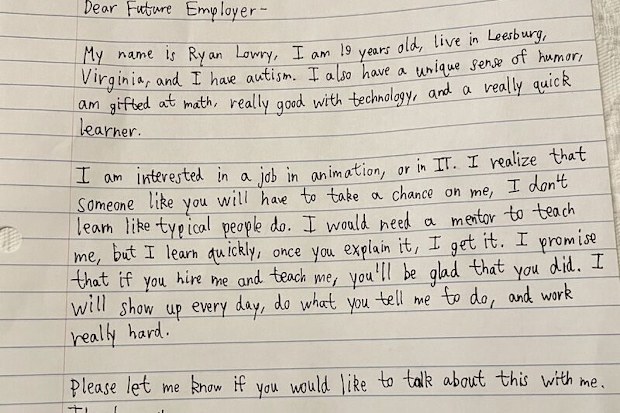 Dear Future Employer-
My name is Ryan Lowry, I am 19 years old, live in Leesburg,
Virginia, and I have autism. I also have a unique sense of humor,
am gifted at math, really good with technology, and a really quick
learner.
I am interested in a job in animation, or in IT. I realize that
someone like you will have to take a chance on me, I don't
learn like typical people do. I would need a mentor to teach
me, but I learn quickly, once you explain it, I get it. I promise
that if you hire me and teach me, you'll be glad that you did. I
will show up every day, do what you tell me to do, and work
really hard.
Please let me know if you would like to talk about this with me.